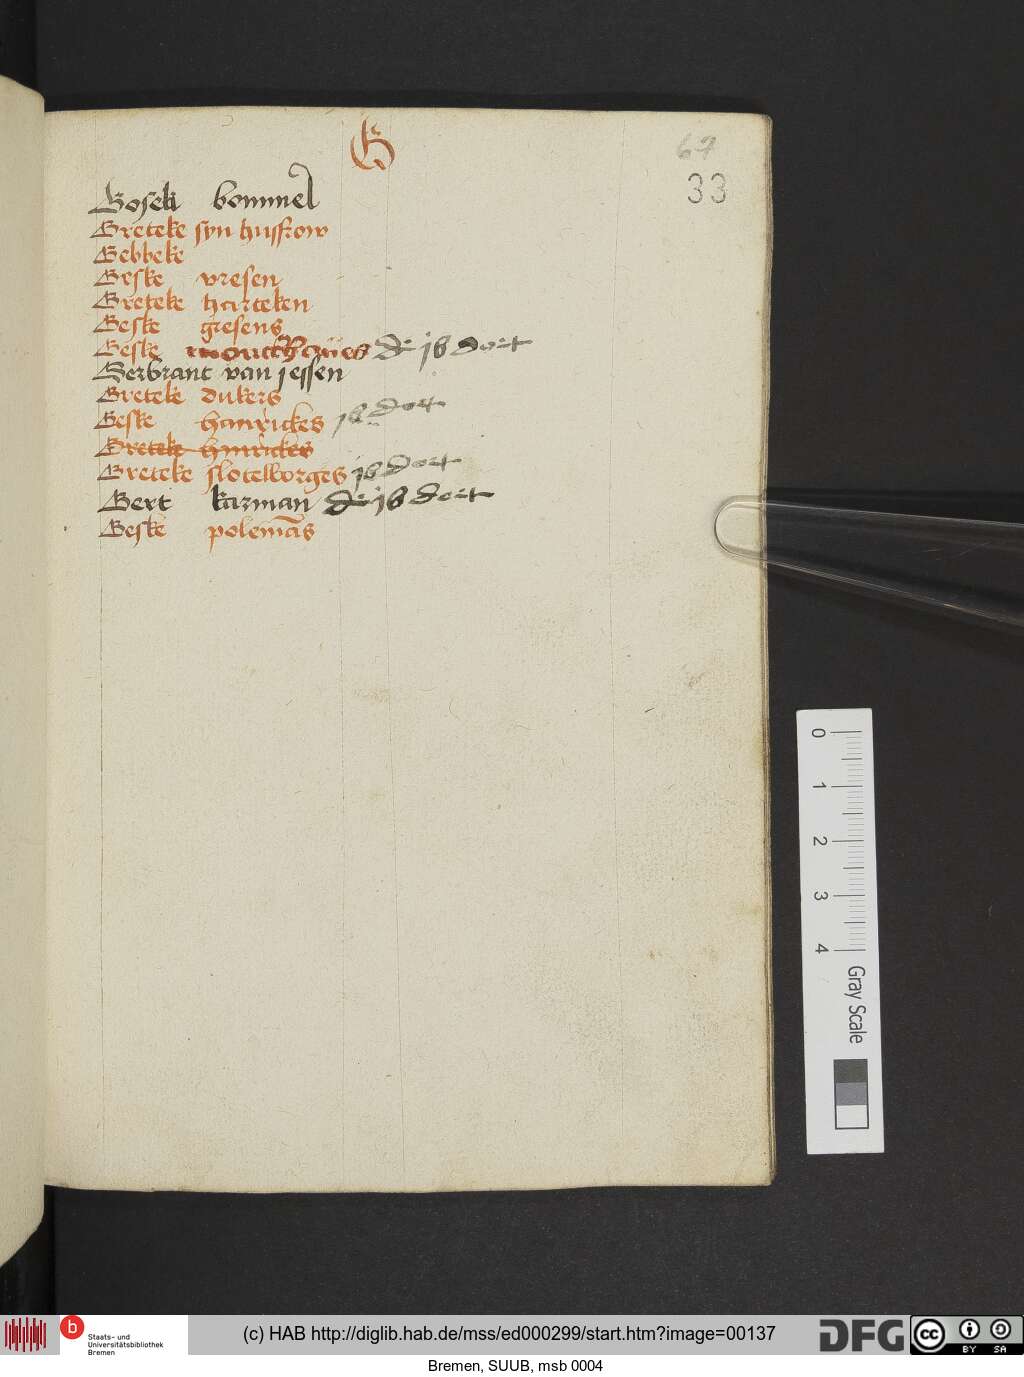 G
67
33
Goseli bommel
Greteke syn husfrow
Gebbeke
Geske vresen
Greteke harteken
Geske gresens
Geske
Gerbrant van jessen
Greteke dukers
Geske hinrickes is doet
Greteke hinrickes
Greteke slotelborges is doet
Gert kazman de is doet
Geske polemans
0
1
2
3
4
Gray Scale
b
Staats- und
Universitätsbibliothek
Bremen
(c) HAB http://diglib.hab.de/mss/ed000299/start.htm?image=00137
DFG
cc
BY SA
Bremen, SUUB, msb 0004